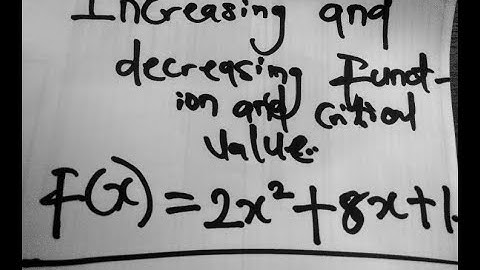 Increasing and
decreasing Funct-
ion and Critical
Value.
F(x) = 2x² + 8x + 1.